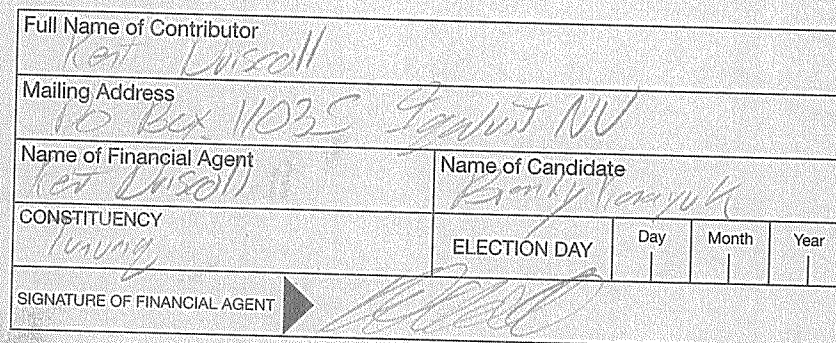 Full Name of Contributor
Kent Driscoll
Mailing Address
PO Box 11035 NU
Name of Financial Agent
Kent Driscoll
Name of Candidate
CONSTITUENCY
ELECTION DAY
Day Month Year
SIGNATURE OF FINANCIAL AGENT